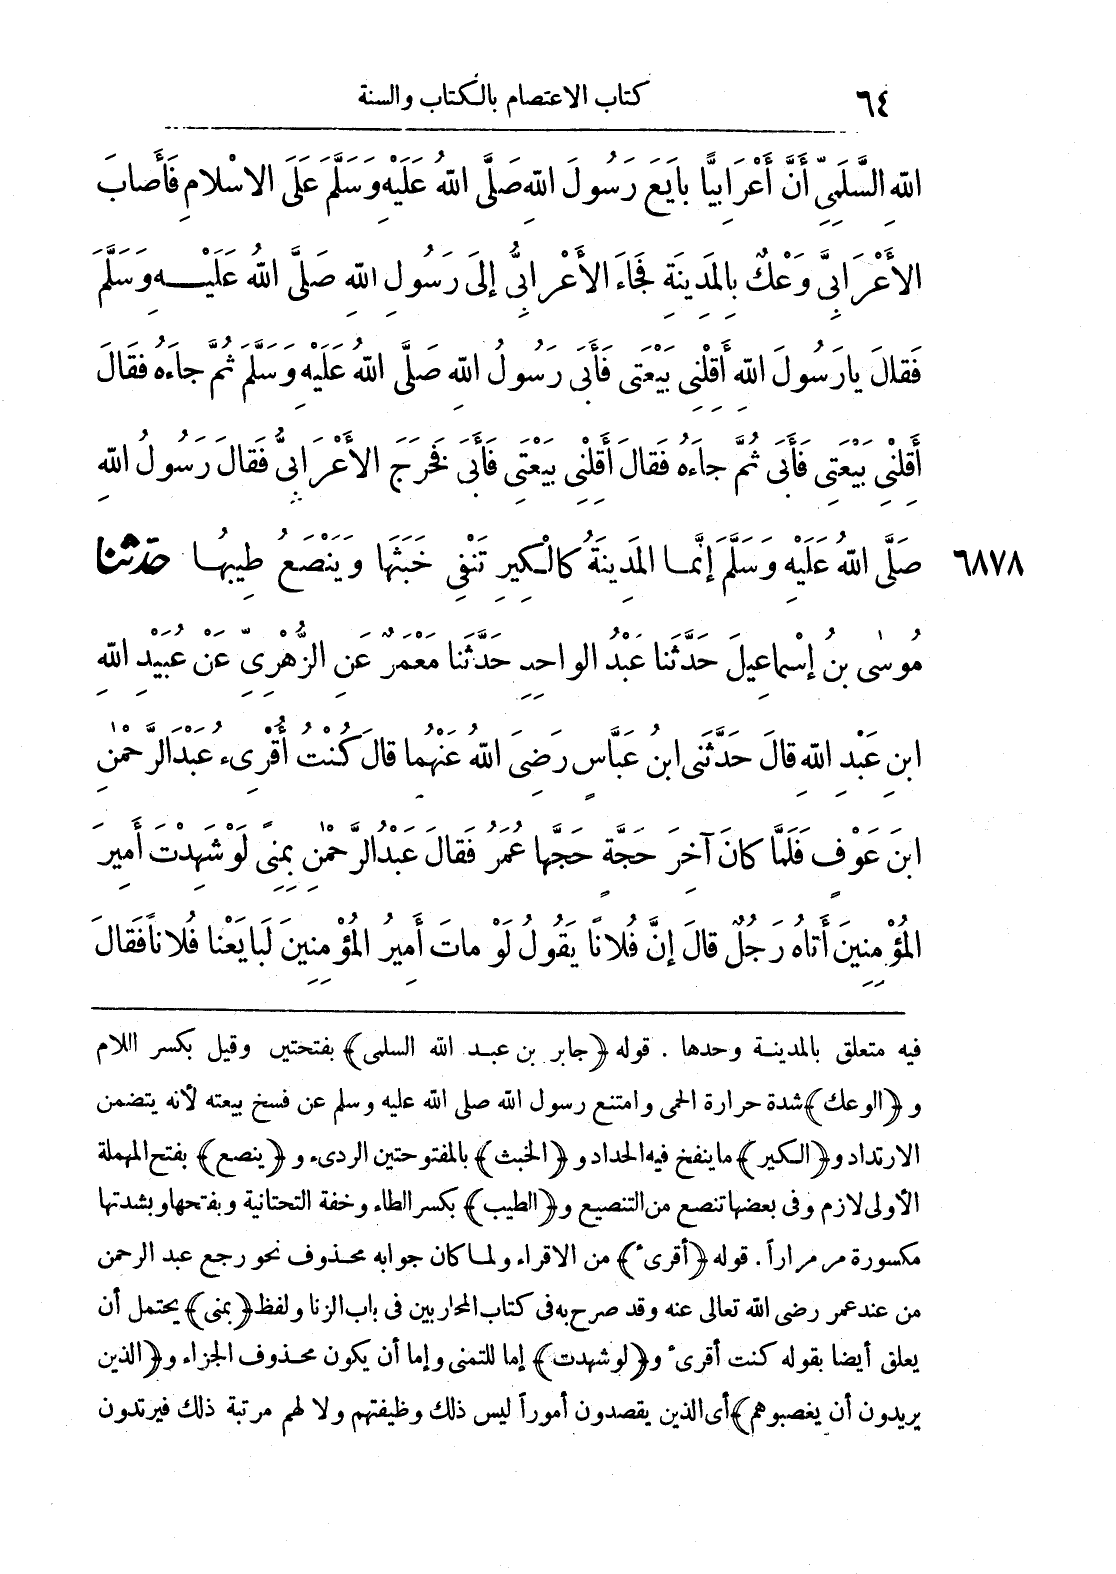 ٦٤ كتاب الاعتصام بالكتاب والسنة
اللهِ السَّلَمِيِّ أَنَّ أَعْرَابِيًّا بايَعَ رَسُولَ اللهِ صَلَّى اللهُ عَلَيْهِ وَسَلَّمَ عَلَى الاسْلامِ فَأَصابَ
الأَعْرَابِيَّ وَعْكٌ بِالمَدِينَةِ فَجَاءَ الأَعْرابِيُّ إِلَى رَسُولِ اللهِ صَلَّى اللهُ عَلَيْـــهِ وَسَلَّمَ
فَقالَ يارَسُولَ اللهِ أَقِلْنِي بَيْعَتِى فَأَبَى رَسُولُ اللهِ صَلَّى اللهُ عَلَيْهِ وَسَلَّمَ ثُمَّ جاءَهُ فَقالَ
أَقِلْنِي بَيْعَتِى فَأَبَى ثُمَّ جاءَهُ فَقالَ أَقِلْنِي بَيْعَتِى فَأَبَى فَخَرَجَ الأَعْرَابِيُّ فَقالَ رَسُولُ اللهِ
٦٨٧٨ صَلَّى اللهُ عَلَيْهِ وَسَلَّمَ إِنَّمـا المَدِينَةُ كالْـكِيرِ تَنْفِى خَبَثَها وَيَنْصَعُ طِيبُهـا حدثنا
مُوسٰى بنُ إِسْماعِيلَ حَدَّثَنا عَبْدُ الواحِدِ حَدَّثَنا مَعْمَرٌ عَنِ الزُّهْرِيِّ عَنْ عُبَيْدِ اللهِ
ابنِ عَبْدِ اللهِ قالَ حَدَّثَنى ابنُ عَبَّاسٍ رَضِىَ اللهُ عَنْهُما قالَ كُنْتُ أُقْرِىءُ عَبْدَالرَّحْمٰنِ
ابنَ عَوْفٍ فَلَمَّا كانَ آخِرَ حَجَّةٍ حَجَّها عُمَرُ فَقالَ عَبْدُالرَّحْمٰنِ بِمِنًى لَوْ شَهِدْتَ أَمِيرَ
المُؤْمِنِينَ أَتاهُ رَجُلٌ قالَ إِنَّ فُلانًا يَقُولُ لَوْ ماتَ أَمِيرُ المُؤْمِنِينَ لَبايَعْنا فُلاناً فَقالَ
فيه متعلق بالمدينـة وحدها . قوله ﴿جابر بن عبـد الله السلمى﴾ بفتحتين وقيل بكسر اللام
و ﴿الوعك﴾ شدة حرارة الحمى وامتنع رسول الله صلى الله عليه وسلم عن فسخ بيعته لأنه يتضمن
الارتداد و﴿الـكير﴾ ماينفخ فيه الحداد و ﴿الخبث﴾ بالمفتوحتين الردىء و ﴿ينصع﴾ بفتح المهملة
الأولى لازم وفى بعضها تنصع من التنصيع و﴿الطيب﴾ بكسر الطاء وخفة التحتانية وبفتحها وبشدتها
مكسورة مر مراراً. قوله ﴿أقرىء﴾ من الاقراء ولمـا كان جوابه محـذوف نحو رجع عبد الرحمن
من عند عمر رضى الله تعالى عنه وقد صرح به فى كتاب المحاربين فى باب الزنا ولفظ ﴿بمنى﴾ يحتمل أن
يعلق أيضا بقوله كنت أقرىء و﴿لو شهدت﴾ إما للتمنى وإما أن يكون محـذوف الجزاء و﴿الذين
يريدون أن يغصبوهم﴾ أى الذين يقصدون أموراً ليس ذلك وظيفتهم ولا لهم مرتبة ذلك فيرتدون